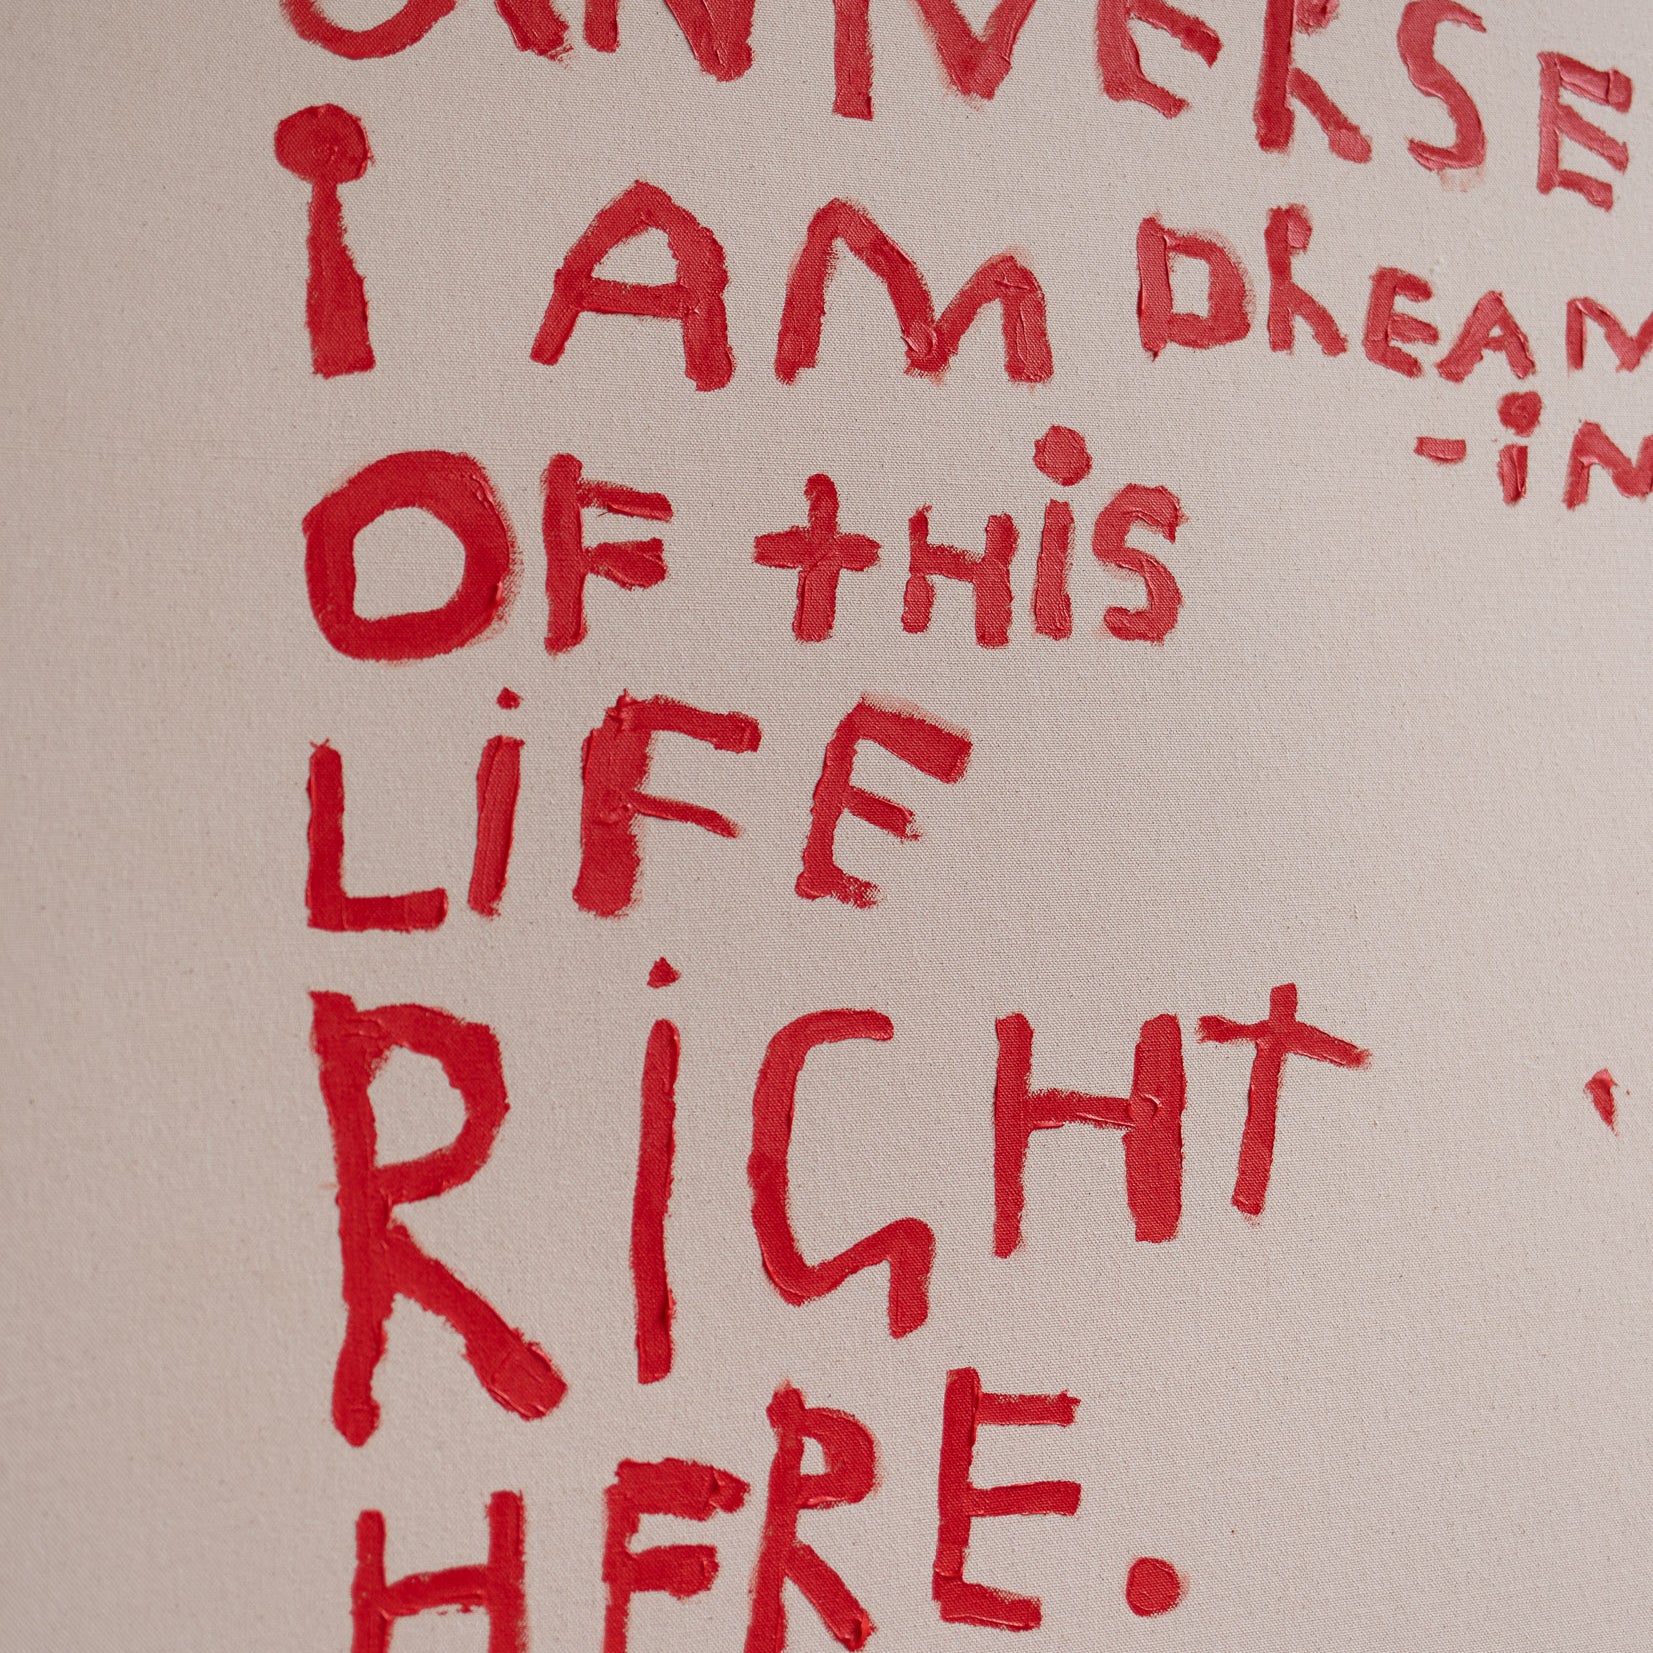 UNIVERSE
I AM DREAM
-iN
OF tHiS
LiFE
RiGHt
HERE.